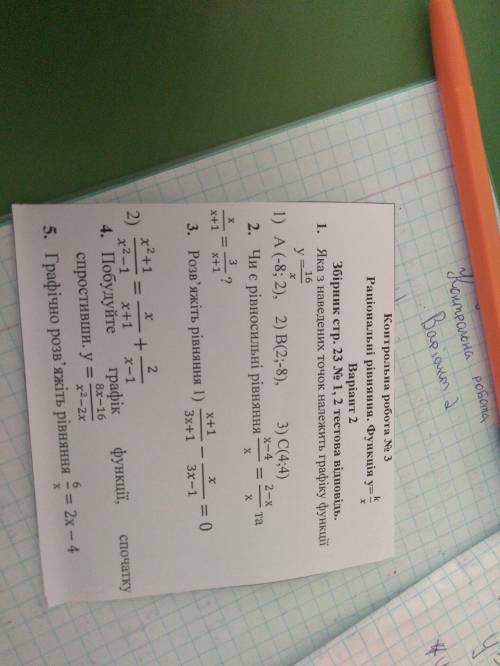 Контрольна робота № 3
Раціональні рівняння. Функція y=k/x
Варіант 2
Збірник стр. 23 № 1, 2 тестова відповідь.
1. Яка з наведених точок належить графіку функції
y = 16/x
1) A (-8; 2), 2) B(2;-8), 3) C(4;4)
2. Чи є рівносильні рівняння (x−4)/x = (2−x)/x та
x/(x+1) = 3/(x+1) ?
3. Розв’яжіть рівняння 1) (x+1)/(3x+1) − x/(3x−1) = 0
2) (x²+1)/(x²−1) = x/(x+1) + 2/(x−1)
4. Побудуйте графік функції, спочатку
спростивши. y = (8x−16)/(x²−2x)
5. Графічно розв’яжіть рівняння 6/x = 2x − 4
Контрольна робота
Варіант 2